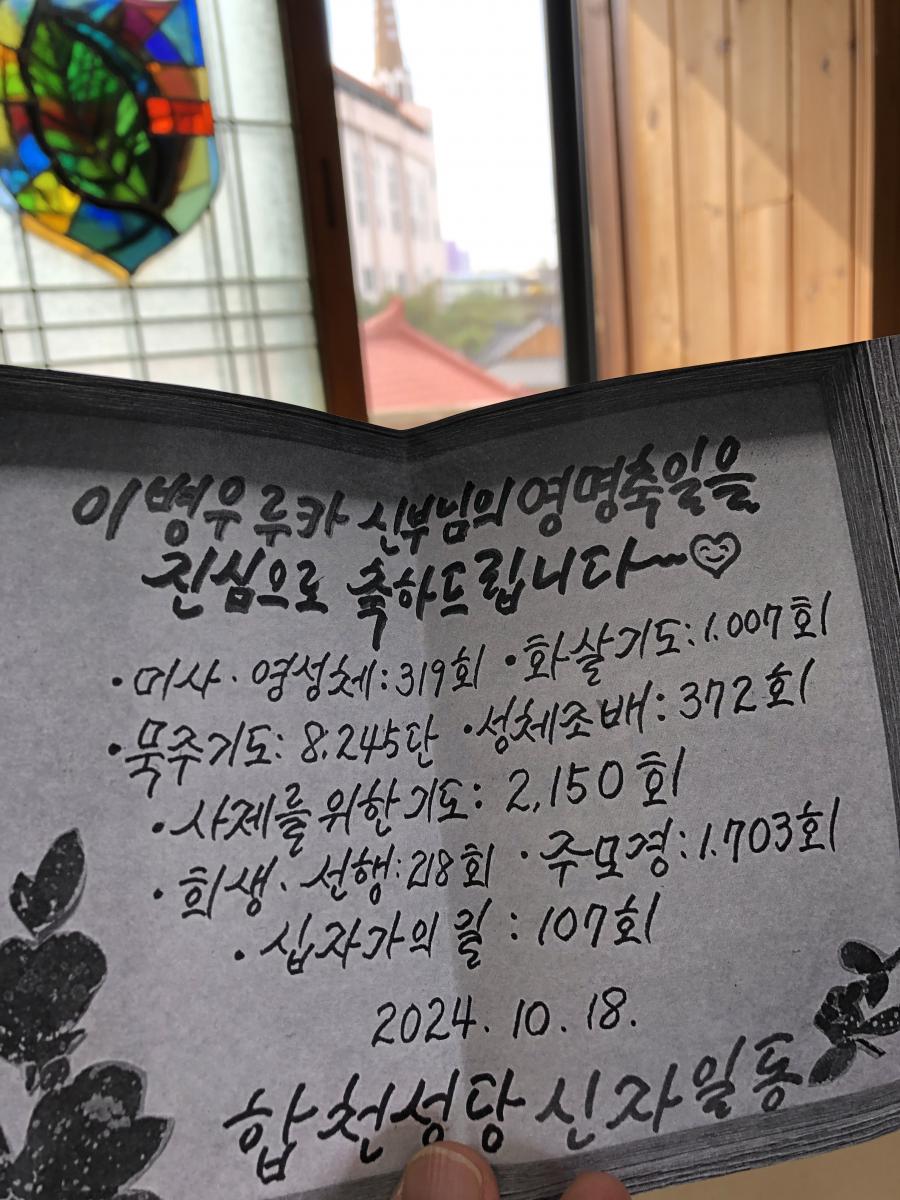 이병우 루카 신부님의 영명축일을
진심으로 축하드립니다~
·미사·영성체:319회 ·화살기도:1.007회
·묵주기도: 8.245단 ·성체조배: 372회
·사제를 위한 기도: 2,150회
·희생·선행:218회 ·주모경:1.703회
·십자가의 길 : 107회
2024. 10. 18.
합천성당 신자일동